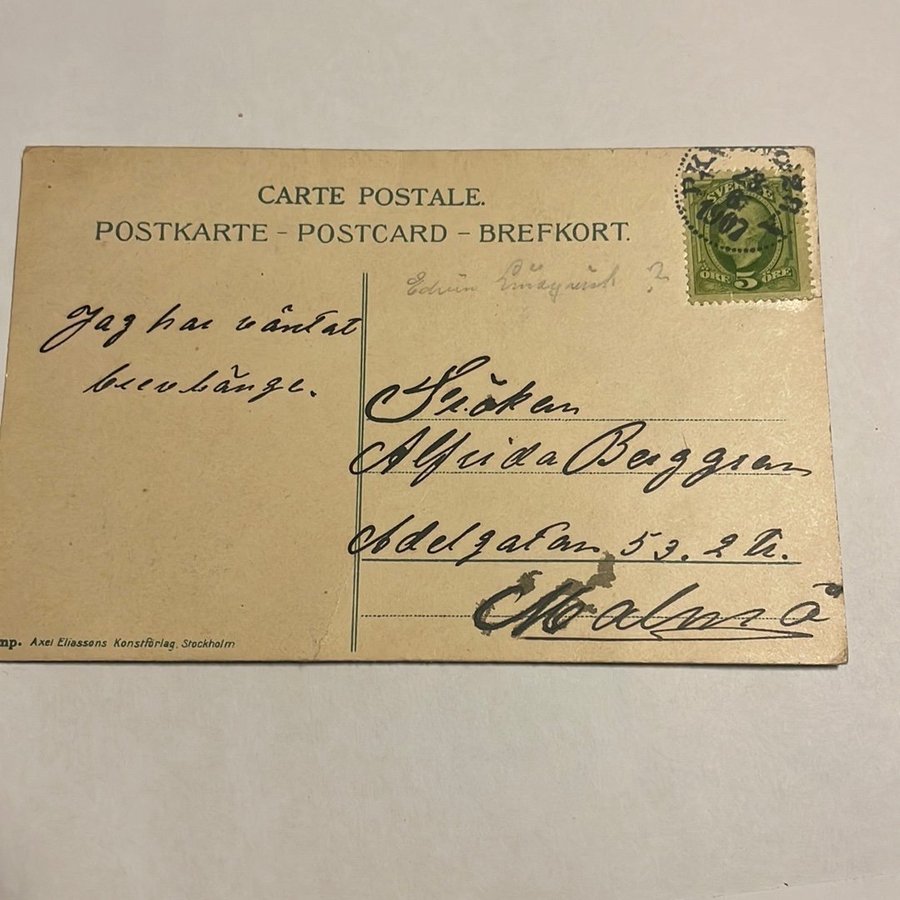 CARTE POSTALE.
POSTKARTE - POSTCARD - BREFKORT.
SVERIGE
ÖRE 5 ÖRE
1907
Edvin
?
Jag har väntat
brev länge.
Fröken
Alfrida Berggren
Adelgatan 53. 2 tr.
Malmö
mp. Axel Eliassons Konstförlag, Stockholm